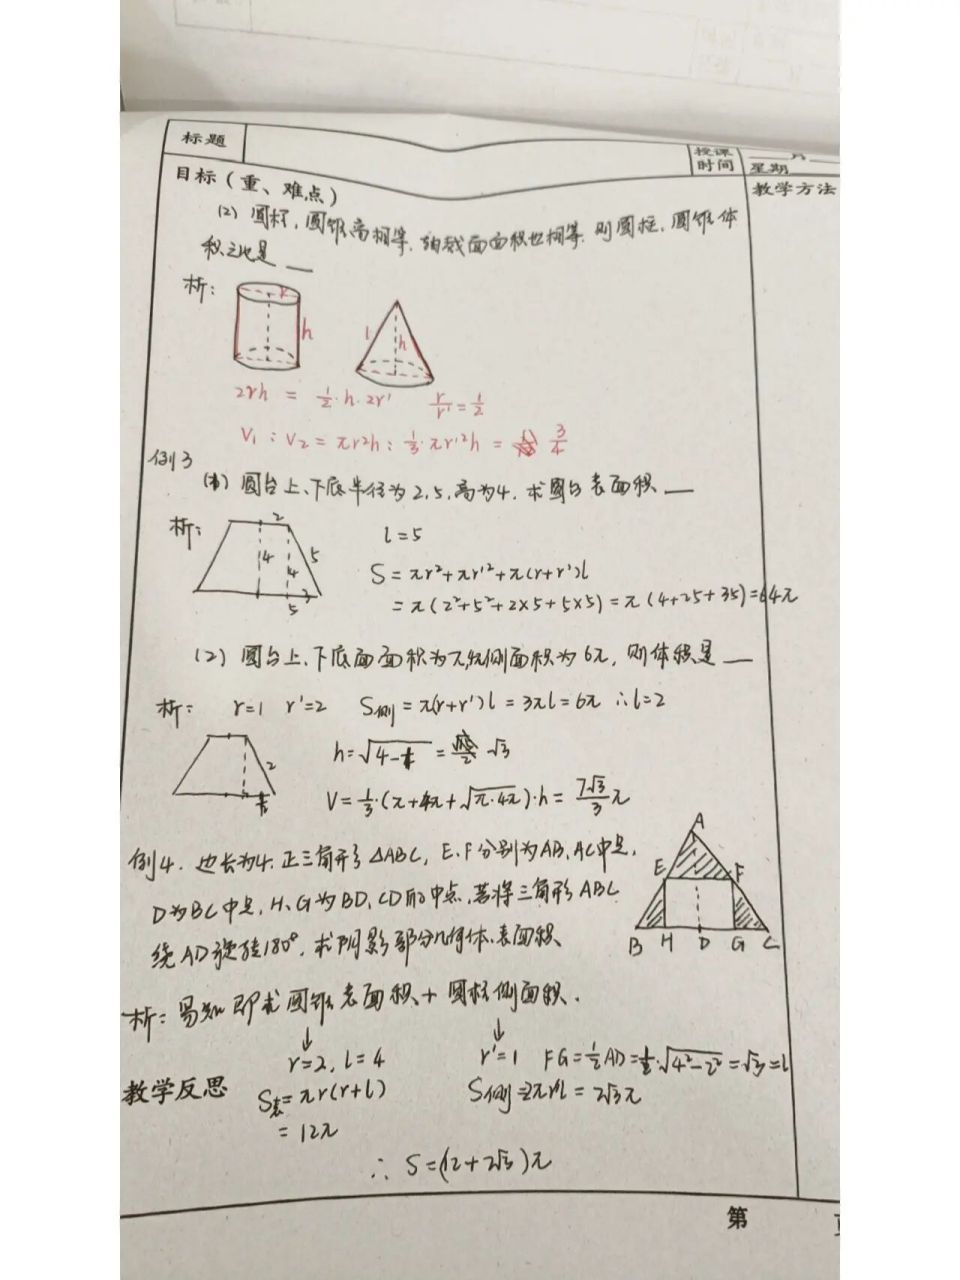 标题
授课
时间
月
星期
目标（重、难点）
教学方法
(2) 圆柱，圆锥高相等，轴截面面积也相等，则圆柱，圆锥体
积之比是 __
析：
r
h
l
h
2rh = 1/2·h·2r' r/r' = 1/2
V₁ : V₂ = πr²h : 1/3·πr'²h = 3/4
例3
(1) 圆台上、下底半径为2,5,高为4，求圆台表面积 __
析：
2
4
4
5
3
5
l=5
S = πr²+πr'²+π(r+r')l
= π(2²+5²+2×5+5×5) = π(4+25+35)=64π
(2) 圆台上、下底面面积为π,4π侧面积为6π，则体积是 __
析： r=1 r'=2 S侧 = π(r+r')l = 3πl = 6π ∴l=2
2
h=√4-1 = √3
V = 1/3·(π+4π+√π·4π)·h = 7√3/3 π
例4. 边长为4.正三角形△ABC，E、F分别为AB、AC中点，
D为BC中点，H、G为BD、CD的中点，若将三角形ABC
绕AD旋转180°，求阴影部分几何体.表面积.
A
E F
B H D G C
析：易知 即求圆锥表面积+圆柱侧面积.
↓ ↓
r=2, l=4 r'=1 FG=1/2AD=1/2·√4²-2²=√3=l
教学反思
S表=πr(r+l) S侧=2πr'l = 2√3π
= 12π
∴ S=(12+2√3)π
第